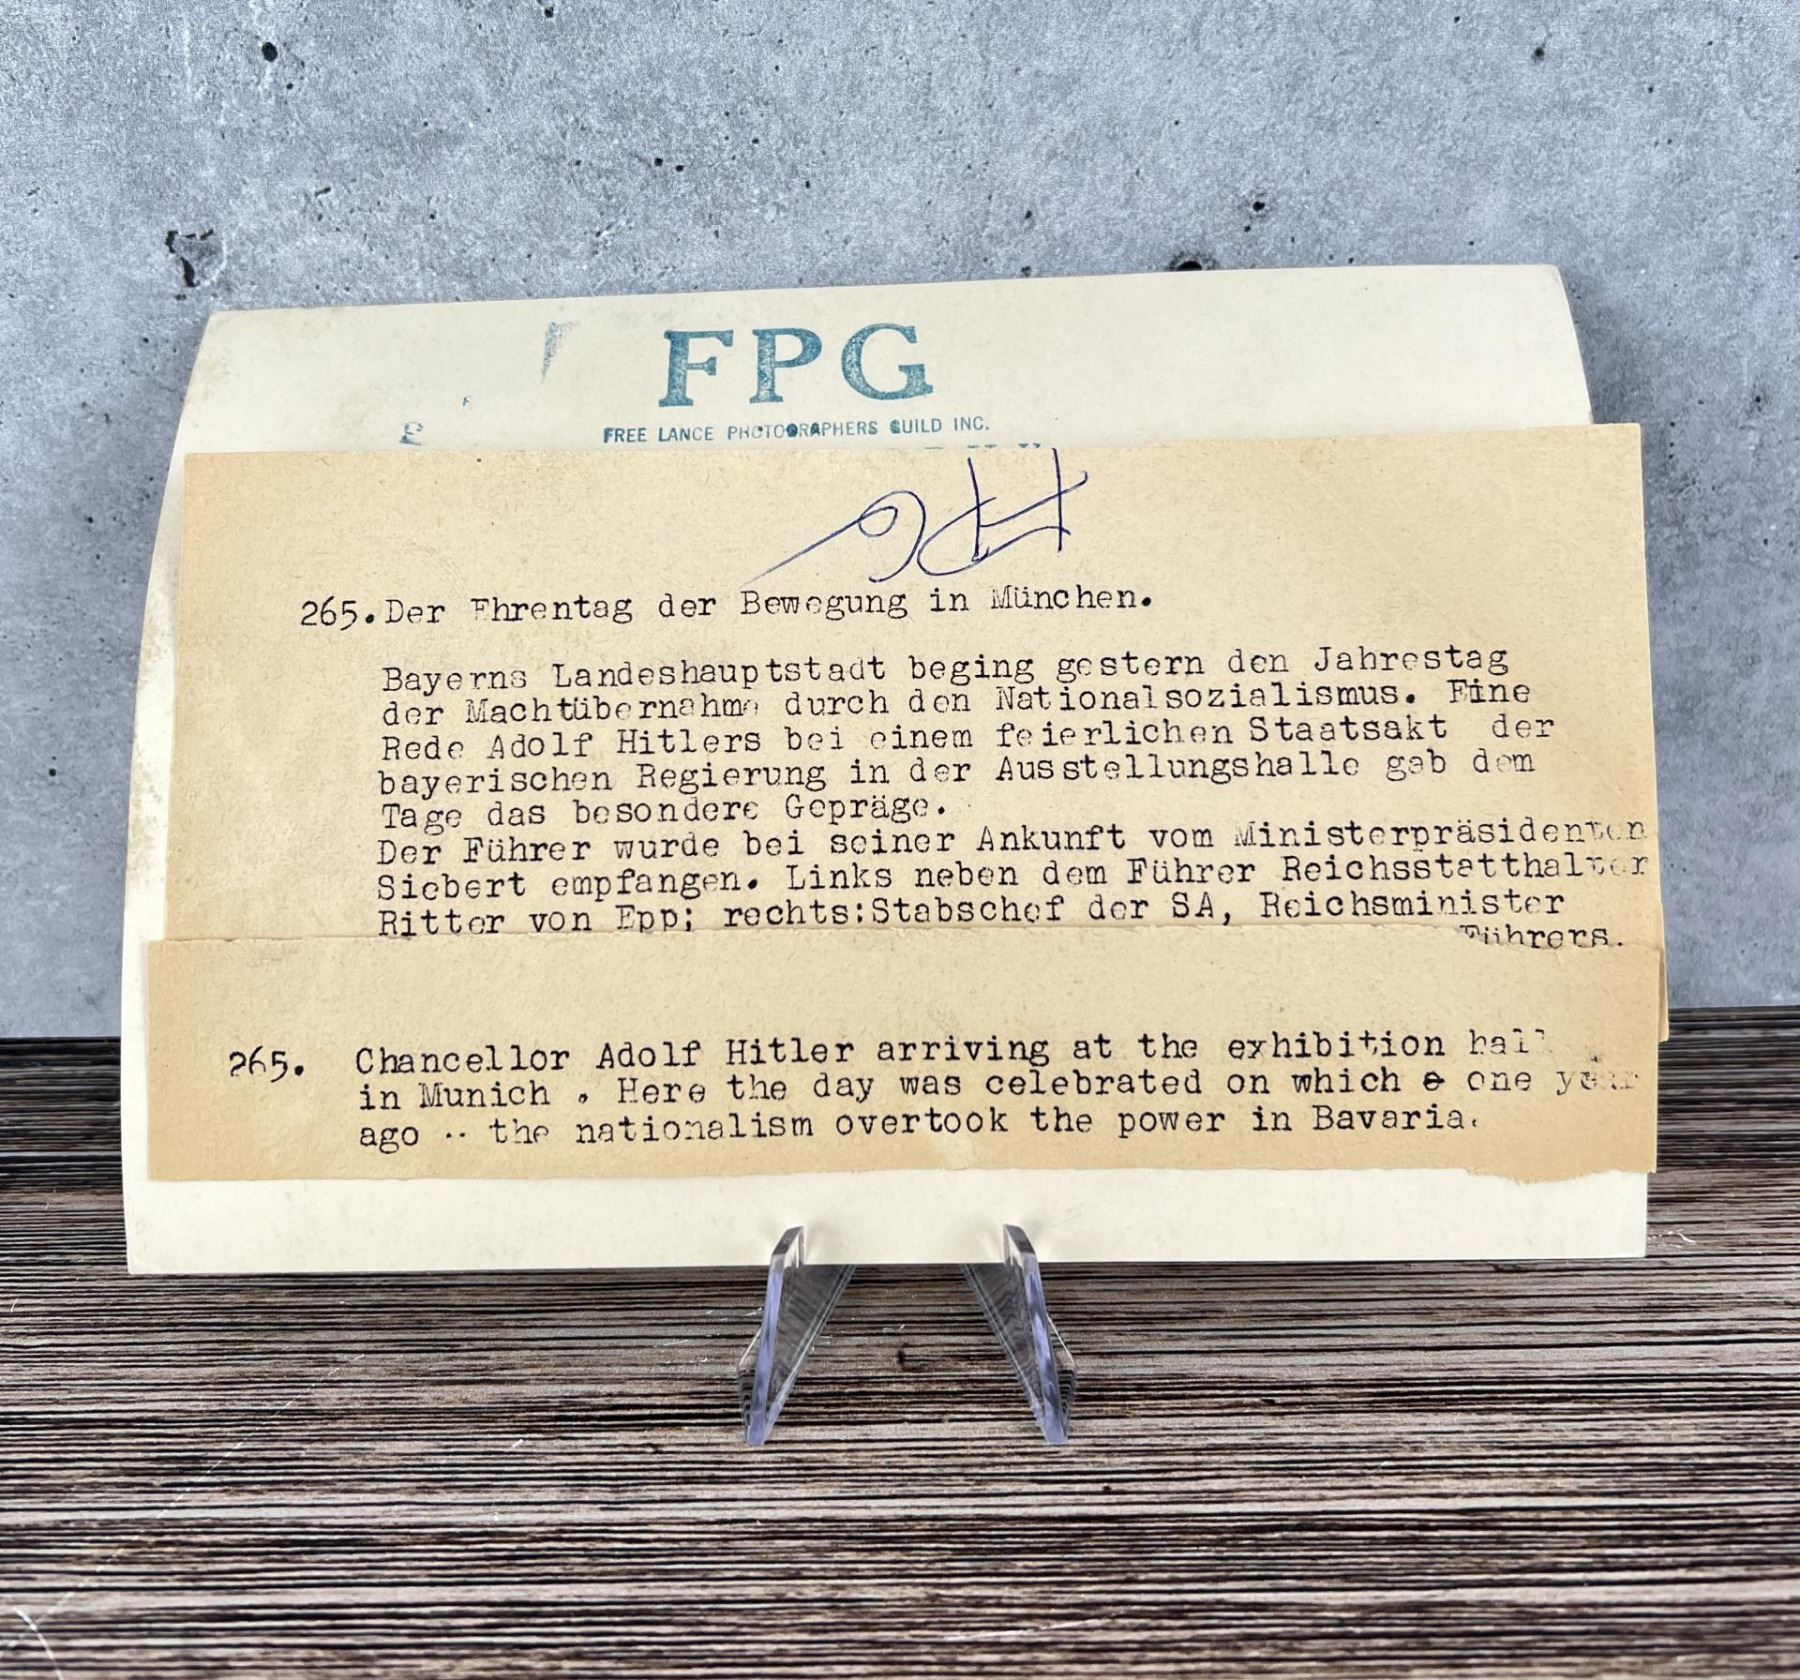 FPG
FREE LANCE PHOTOGRAPHERS GUILD INC.
265. Der Ehrentag der Bewegung in München.
Bayerns Landeshauptstadt beging gestern den Jahrestag
der Machtübernahme durch den Nationalsozialismus. Eine
Rede Adolf Hitlers bei einem feierlichen Staatsakt der
bayerischen Regierung in der Ausstellungshalle gab dem
Tage das besondere Gepräge.
Der Führer wurde bei seiner Ankunft vom Ministerpräsidenten
Siebert empfangen. Links neben dem Führer Reichsstatthalter
Ritter von Epp; rechts:Stabschef der SA, Reichsminister
Führers.
265. Chancellor Adolf Hitler arriving at the exhibition hall
in Munich . Here the day was celebrated on which one year
ago .. the nationalism overtook the power in Bavaria.